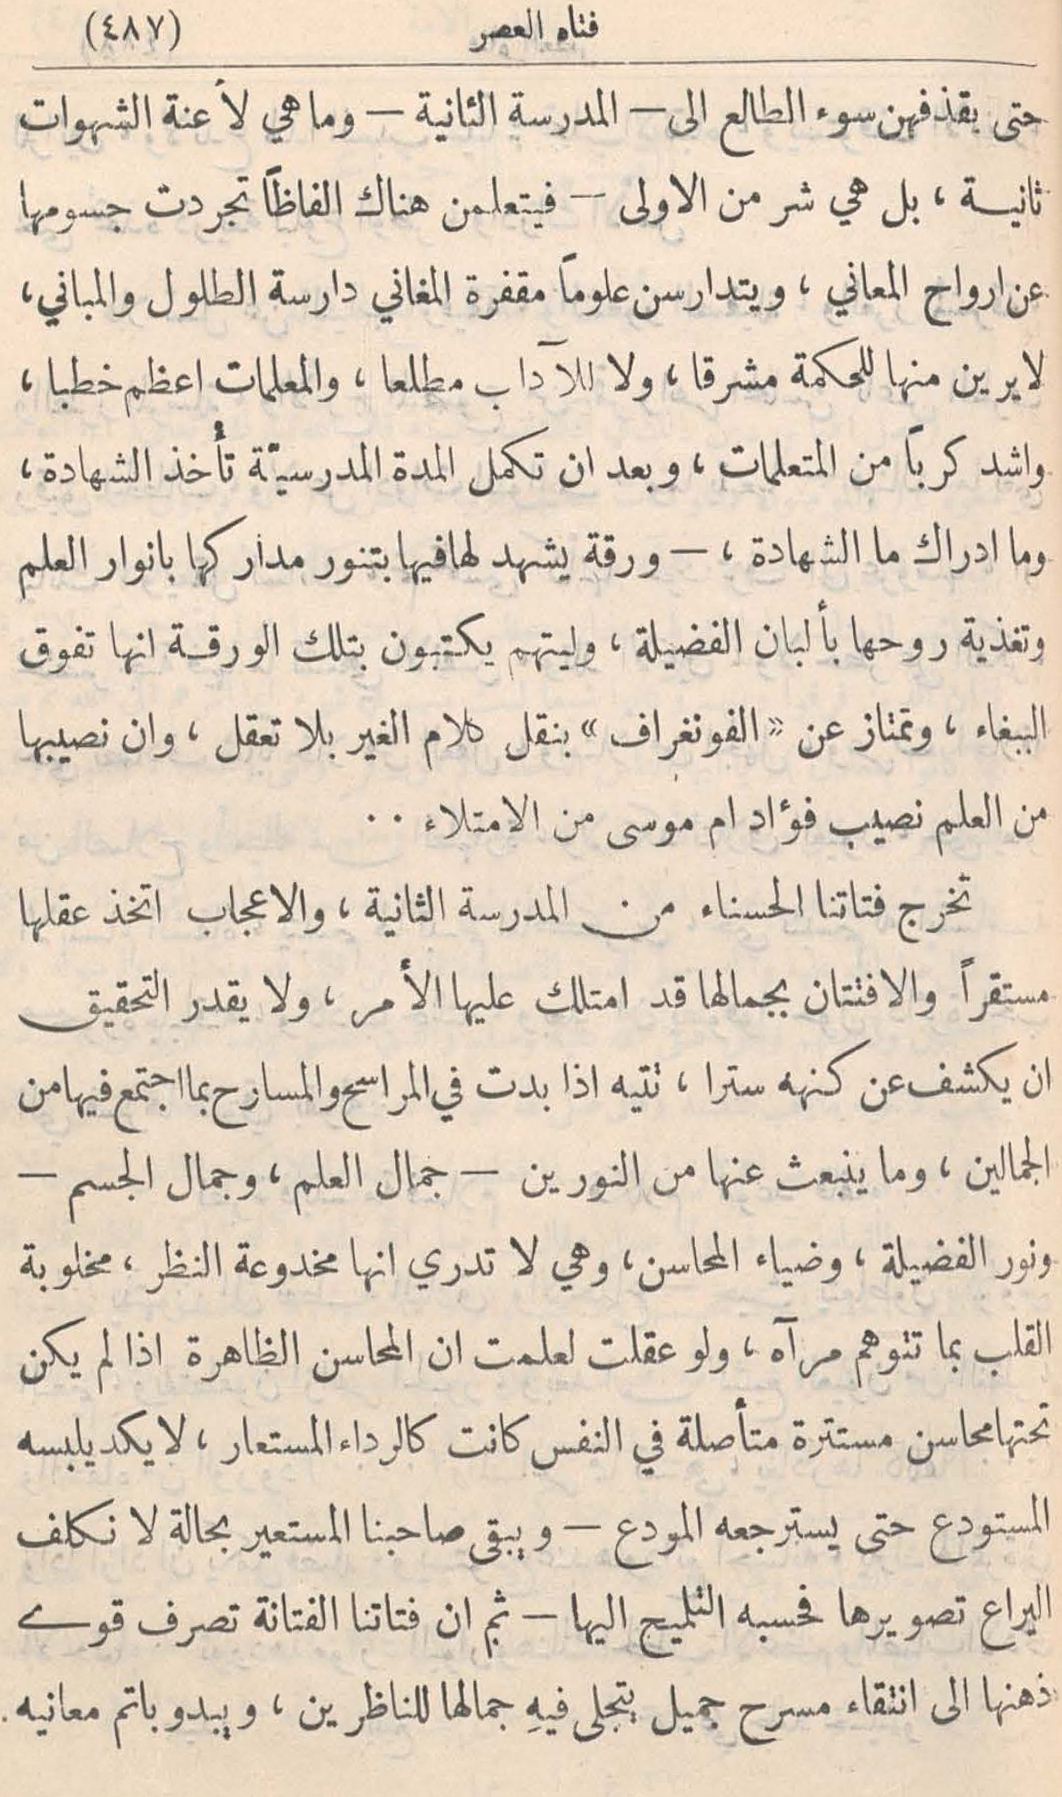 فتاه العصر (٤٨٧)
حتى يقذفهن سوء الطالع الى — المدرسة الثانية — وما هي لأعنة الشهوات
ثانيسة ، بل هي شر من الاولى — فيتعلمن هناك الفاظاً تجردت جسومها
عن ارواح المعاني ، ويتدارسن علوماً مقفرة المغاني دارسة الطلول والمباني،
لا يرين منها للحكمة مشرقا ، ولا للآداب مطلعا ، والمعلمات اعظم خطبا ،
واشد كرباً من المتعلمات ، وبعد ان تكمل المدة المدرسيّة تأُخذ الشهادة ،
وما ادراك ما الشهادة ، — ورقة يشهد لها فيها بتنور مداركها بانوار العلم
وتغذية روحها بألبان الفضيلة ، وليتهم يكتبون بتلك الورقة انها تفوق
الببغاء ، وتمتاز عن «الفونغراف» بنقل كلام الغير بلا تعقل ، وان نصيبها
من العلم نصيب فؤاد ام موسى من الامتلاء ..
تخرج فتاتنا الحسناء من المدرسة الثانية ، والاعجاب اتخذ عقلها
مستقراً والافتتان بجمالها قد امتلك عليها الأمر ، ولا يقدر التحقيق
ان يكشف عن كنهه سترا ، تتيه اذا بدت في المراسح والمسارح بما اجتمع فيها من
الجمالين ، وما ينبعث عنها من النورين — جمال العلم ، وجمال الجسم —
ونور الفضيلة ، وضياء المحاسن ، وهي لا تدري انها مخدوعة النظر ، مخلوبة
القلب بما تتوهم مرآه ، ولو عقلت لعلمت ان المحاسن الظاهرة اذا لم يكن
تحتها محاسن مستترة متأصلة في النفس كانت كالرداء المستعار ، لا يكد يلبسه
المستودع حتى يسترجعه المودع — ويبقى صاحبنا المستعير بحالة لا نكلف
اليراع تصويرها فحسبه التلميح اليها — ثم ان فتاتنا الفتانة تصرف قوے
ذهنها الى انتقاء مسرح جميل يتجلى فيهِ جمالها للناظرين ، ويبدو باتم معانيه .